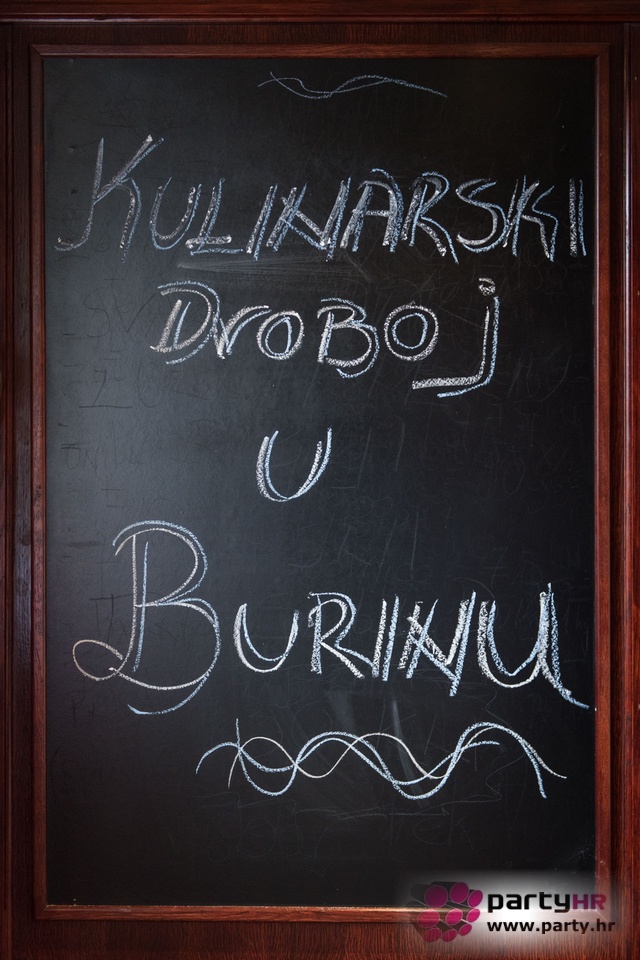 KULINARSKI
DVOBOJ
U
BURINU
partyHR
www.party.hr